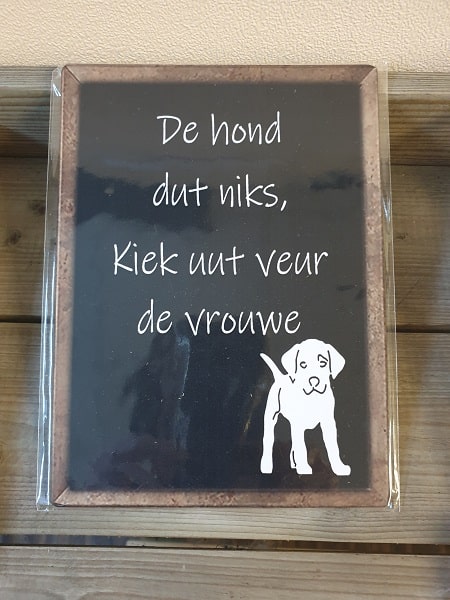 De hond
dut niks,
Kiek uut veur
de vrouwe